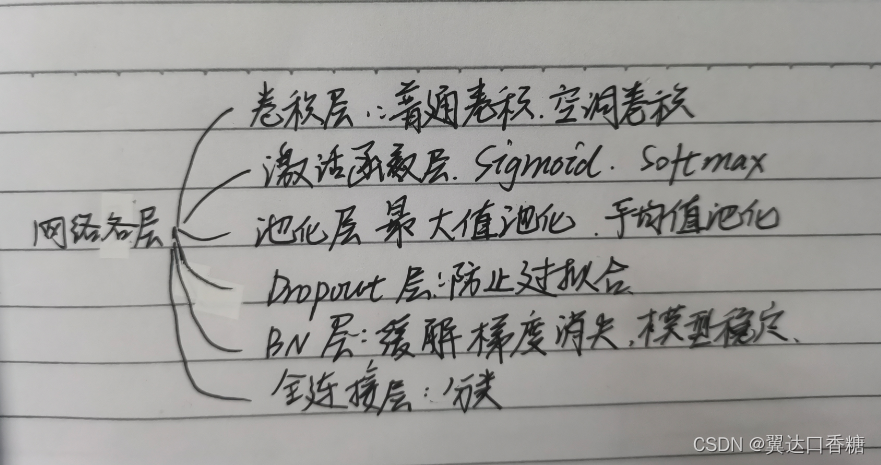 卷积层：普通卷积、空洞卷积
激活函数层、Sigmoid、Softmax
网络各层
池化层 最大值池化、平均值池化
Dropout层：防止过拟合
BN层：缓解梯度消失，模型稳定、
全连接层：分类
CSDN @翼达口香糖